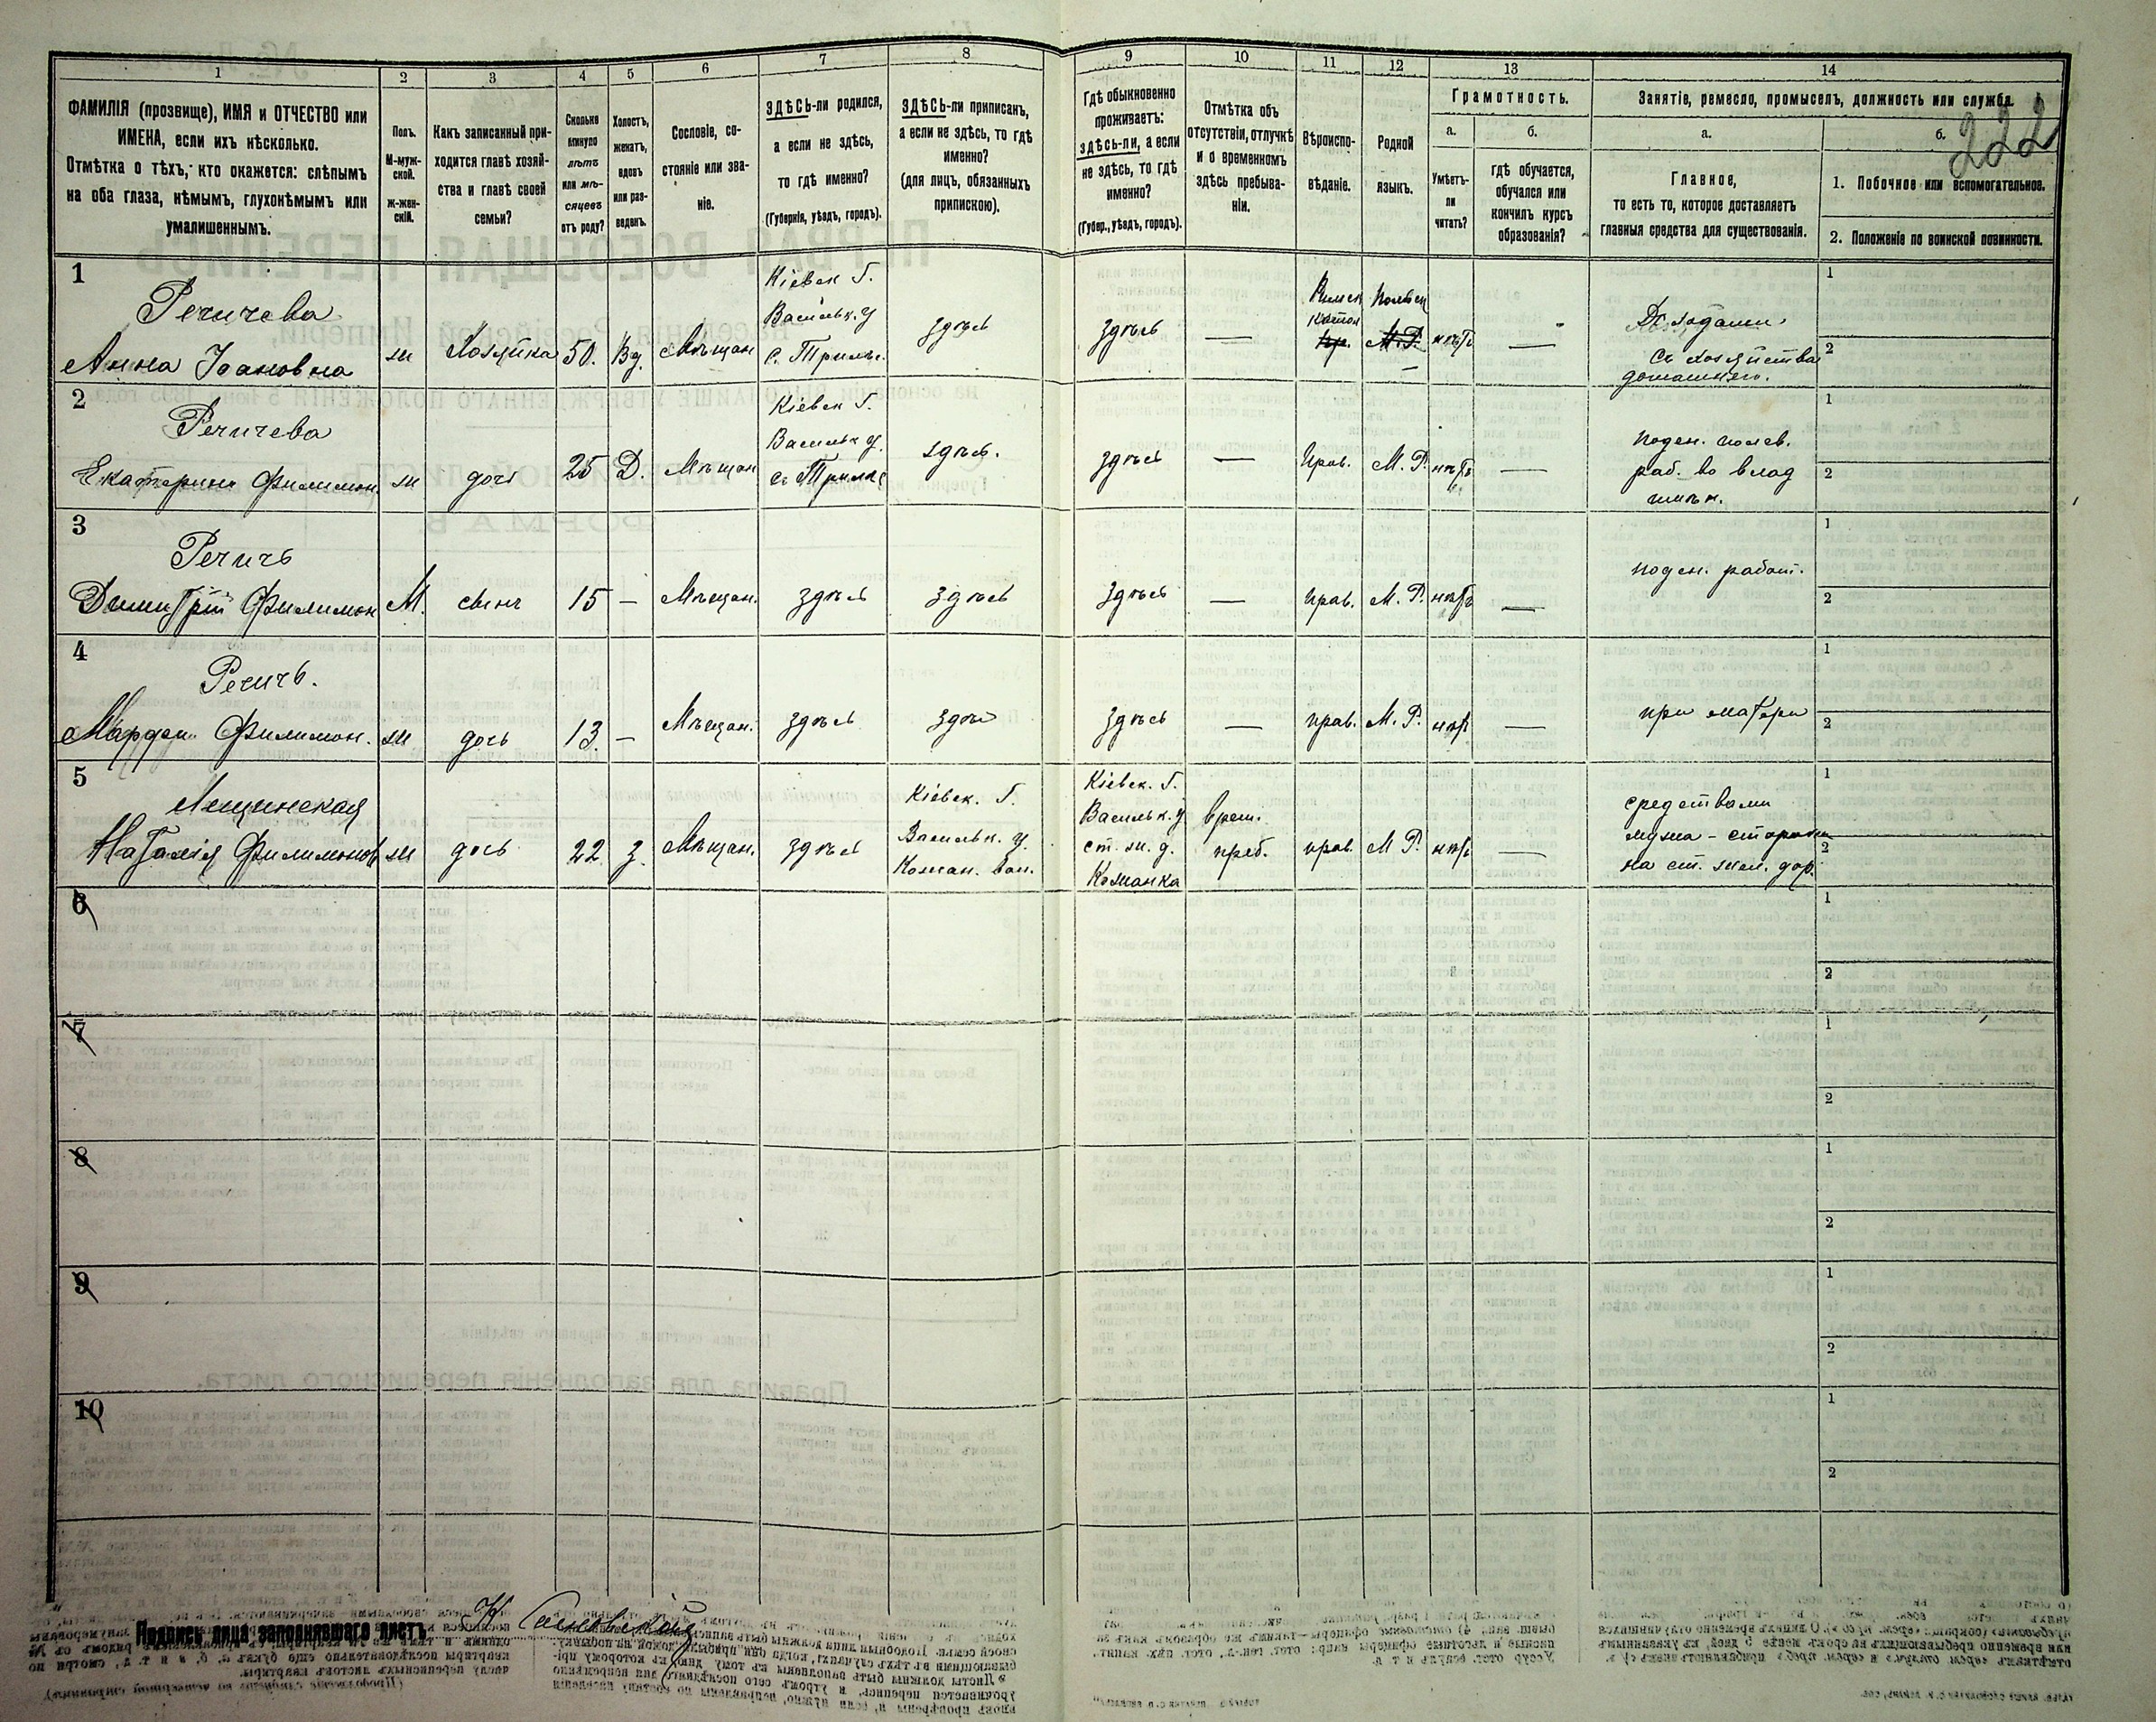 1 2 3 4 5 6 7 8 9 10 11 12 13 14
ФАМИЛІЯ (прозвище), ИМЯ и ОТЧЕСТВО или
ИМЕНА, если ихъ нѣсколько.
Отмѣтка о тѣхъ, кто окажется: слѣпымъ
на оба глаза, нѣмымъ, глухонѣмымъ или
умалишеннымъ.
Полъ.
М-муж-
ской.
ж-жен-
скій.
Какъ записанный при-
ходится главѣ хозяй-
ства и главѣ своей
семьи?
Сколько
минуло
лѣтъ
или мѣ-
сяцевъ
отъ роду?
Холостъ,
женатъ,
вдовъ
или раз-
веденъ.
Сословіе, со-
стояніе или зва-
ніе.
ЗДѢСЬ-ли родился,
а если не здѣсь,
то гдѣ именно?
(Губернія, уѣздъ, городъ).
ЗДѢСЬ-ли приписанъ,
а если не здѣсь, то гдѣ
именно?
(для лицъ, обязанныхъ
припискою).
Гдѣ обыкновенно
проживаетъ:
здѣсь-ли, а если
не здѣсь, то гдѣ
именно?
(Губер., уѣздъ, городъ).
Отмѣтка объ
отсутствіи, отлучкѣ
и о временномъ
здѣсь пребыва-
ніи.
Вѣроиспо-
вѣданіе.
Родной
языкъ.
Грамотность.
а.
Умѣетъ-
ли
читать?
б.
гдѣ обучается,
обучался или
кончилъ курсъ
образованія?
Занятіе, ремесло, промыселъ, должность или служба.
а.
Главное,
то есть то, которое доставляетъ
главныя средства для существованія.
б.
222
1. Побочное или вспомогательное.
2. Положеніе по воинской повинности.
1
Речичева
Анна Іоановна
ж
Хозяйка
50.
Вд.
Мѣщан
Кіевск Г.
Васильк. у
с. Трилѣс.
здѣсь
здѣсь
—
Римск
катол
пр.
Польск
М. Р.
нѣтъ
—
Доходами
съ хозяйства
домашняго.
1
2
2
Речичева
Екатерина Филимон.
ж
дочь
25
Д.
Мѣщан
Кіевск Г.
Васильк у.
с. Трилѣс
здѣсь.
здѣсь
—
Прав.
М. Р.
нѣтъ
—
поден. полев.
раб. во влад
имѣн.
1
2
3
Речичъ
Димитрій Филимон
М.
сынъ
15
—
Мѣщан.
здѣсь
здѣсь
здѣсь
—
прав.
М. Р.
нѣтъ
—
поден. работ.
1
2
4
Речичъ.
Филимон.
ж
дочь
13.
—
Мѣщан.
здѣсь
здѣсь
здѣсь
—
прав.
М. Р.
нѣтъ
—
при матери
1
2
5
Лещинская
Наталія Филимонов
ж
дочь
22.
З.
Мѣщан.
здѣсь
Кіевск. Г.
Васильк. у.
Кожан. вол.
Кіевск. Г.
Васильк. у
ст. ж. д.
Кожанка
врем.
преб.
прав.
М Р.
нѣтъ
—
средствами
мужа - сторожа
на ст. жел. дор.
1
2
6
1
2
7
1
2
8
1
2
9
1
2
10
1
2
Подпись лица заполнявшаго листъ